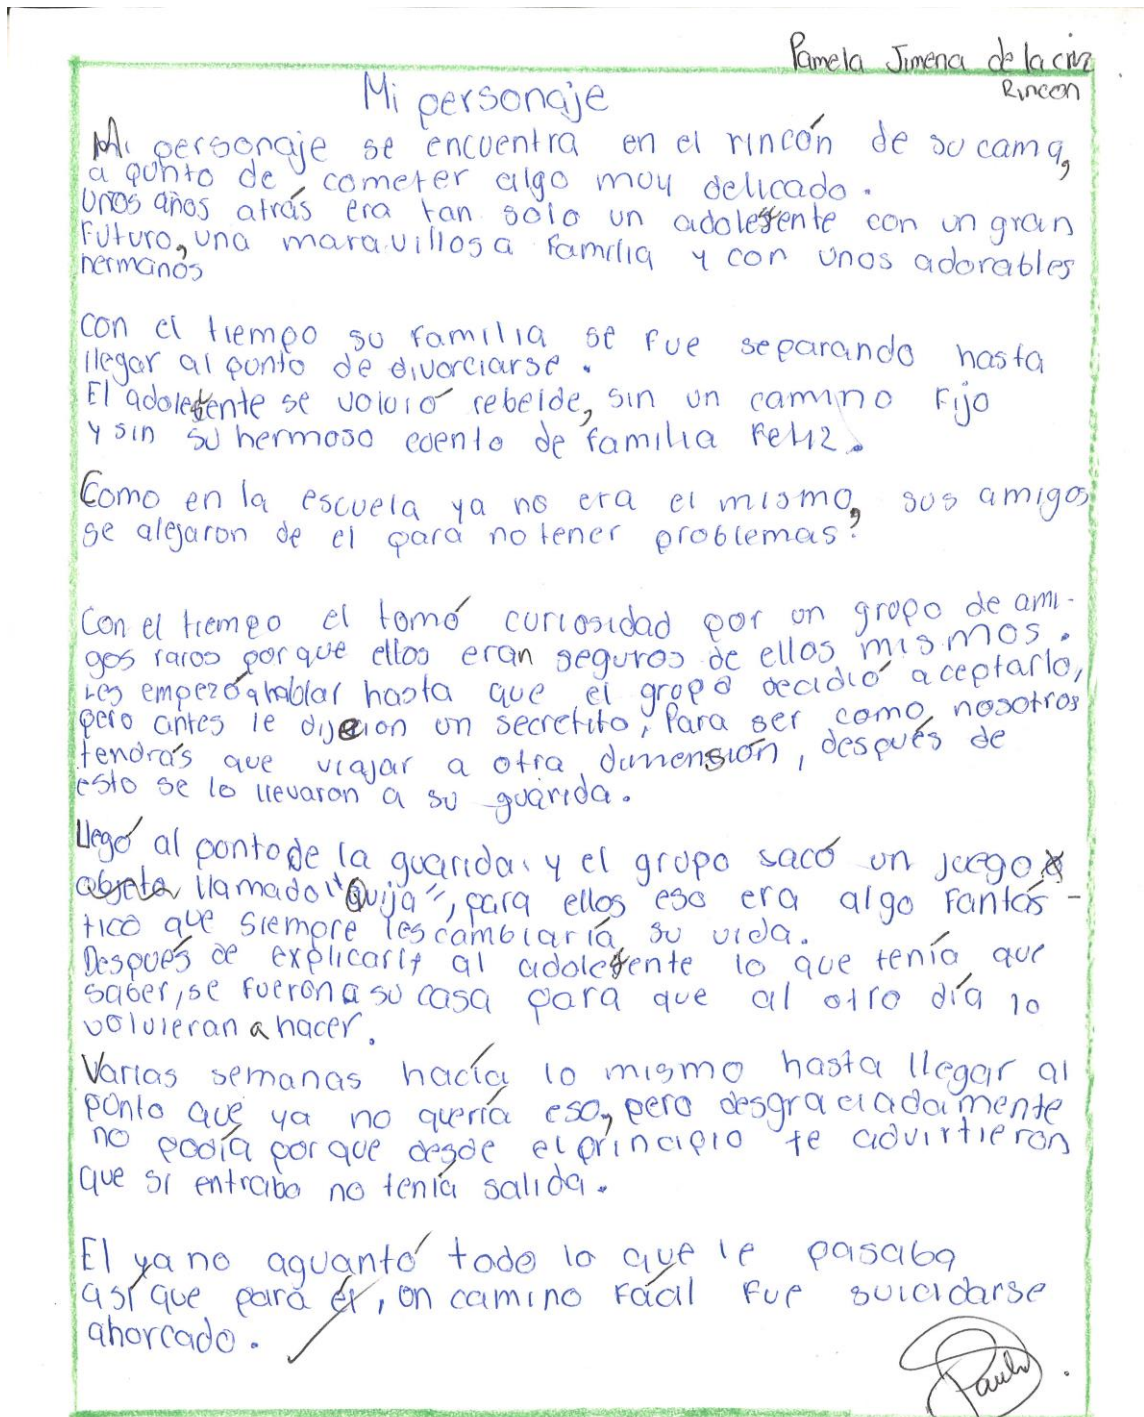 Pamela Jimena de la cruz
Rincon
Mi personaje
Mi personaje se encuentra en el rincón de su cama,
a punto de cometer algo muy delicado.
Unos años atrás era tan solo un adolesente con un gran
Futuro, una maravillosa familia y con unos adorables
hermanos
Con el tiempo su familia se fue separando hasta
llegar al punto de divorciarse.
El adolesente se volvió rebelde, sin un camino Fijo
y sin su hermoso cuento de familia Feliz.
Como en la escuela ya no era el mismo, sus amigos
se alejaron de el para no tener problemas.
Con el tiempo el tomó curiosidad por un grupo de ami-
gos raros por que ellos eran seguros de ellos mismos.
Les empezó a hablar hasta que el grupo decidió aceptarlo,
pero antes le dijeron un secretito, Para ser como nosotros
tendrás que viajar a otra dimensión, después de
esto se lo llevaron a su guarida.
Llegó al punto de la guarida y el grupo sacó un juego
objeto llamado "Quija", para ellos eso era algo Fantás-
tico que siempre les cambiaría su vida.
Después de explicarle al adolesente lo que tenía que
saber, se fueron a su casa para que al otro día lo
volvieran a hacer.
Varias semanas hacía lo mismo hasta llegar al
punto que ya no quería eso, pero desgraciadamente
no podía por que desde el principio te advirtieron
que si entraba no tenía salida.
El ya no aguantó todo lo que le pasaba
así que para él, un camino Fácil Fue suicidarse
ahorcado.